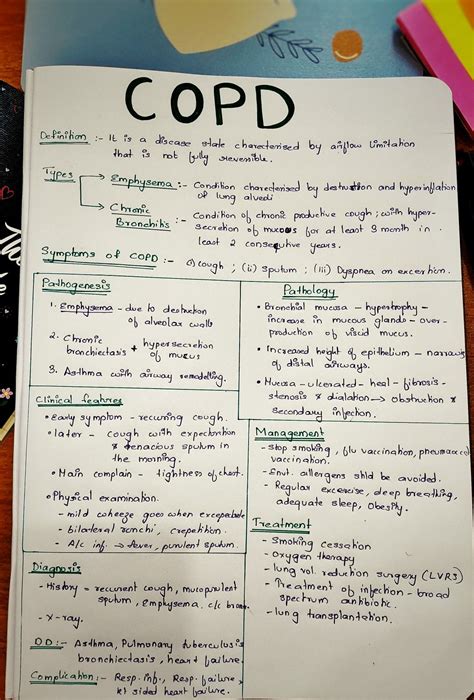 COPD
Definition :- It is a disease state charecterised by airflow limitation
that is not fully reversible.
Types
Emphysema :- Condition charecterised by destruction and hyperinflation
of lung alveoli
Chronic
Bronchitis :- Condition of chronic productive cough ; with hyper-
secretion of mucous for at least 3 month in
least 2 consequtive years.
Symptoms of COPD :- a) cough ; (ii) sputum ; (iii) Dyspnea on excertion.
Pathogenesis
1. Emphysema - due to destruction
of alveolar walls
2. Chronic
bronchiectasis + hypersecretion
of mucus
3. Asthma with airway remodelling.
Pathology
• Bronchial mucosa - hypertrophy -
increase in mucous glands - over-
production of viscid mucus.
• Increased height of epithelium - narrows
of distal airways.
• Mucosa - ulcerated - heal - fibrosis -
stenosis & dialation → obstruction &
Secondary infection.
Clinical features
• Early symptom - recurring cough.
• later - cough with expectoration
& tenacious sputum in
the morning.
• Main complain - tightness of chest.
• Physical examination.
- mild wheeze goes when
- bilateral ronchi, crepetition.
- A/c inf. → fever, purulent sputum.
Management
- Stop smoking, flu vaccination, pneumococcal
vaccination.
- Envt. allergens shld be avoided.
- Regular excercise, deep breathing,
adequate sleep, Obesity.
Treatment
- Smoking cessation
- Oxygen therapy
- lung vol. reduction surgery (LVRS)
- Treatment of infection - broad
spectrum antibiotic.
- lung transplantation.
Diagnosis
- History - recurrent cough, mucopurulent
sputum, Emphysema, c/c
- X-ray.
DD :- Asthma, Pulmonary tuberculosis
bronchiectasis, heart failure.
Complication :- Resp. inf., Resp. failure,
sided heart failure.